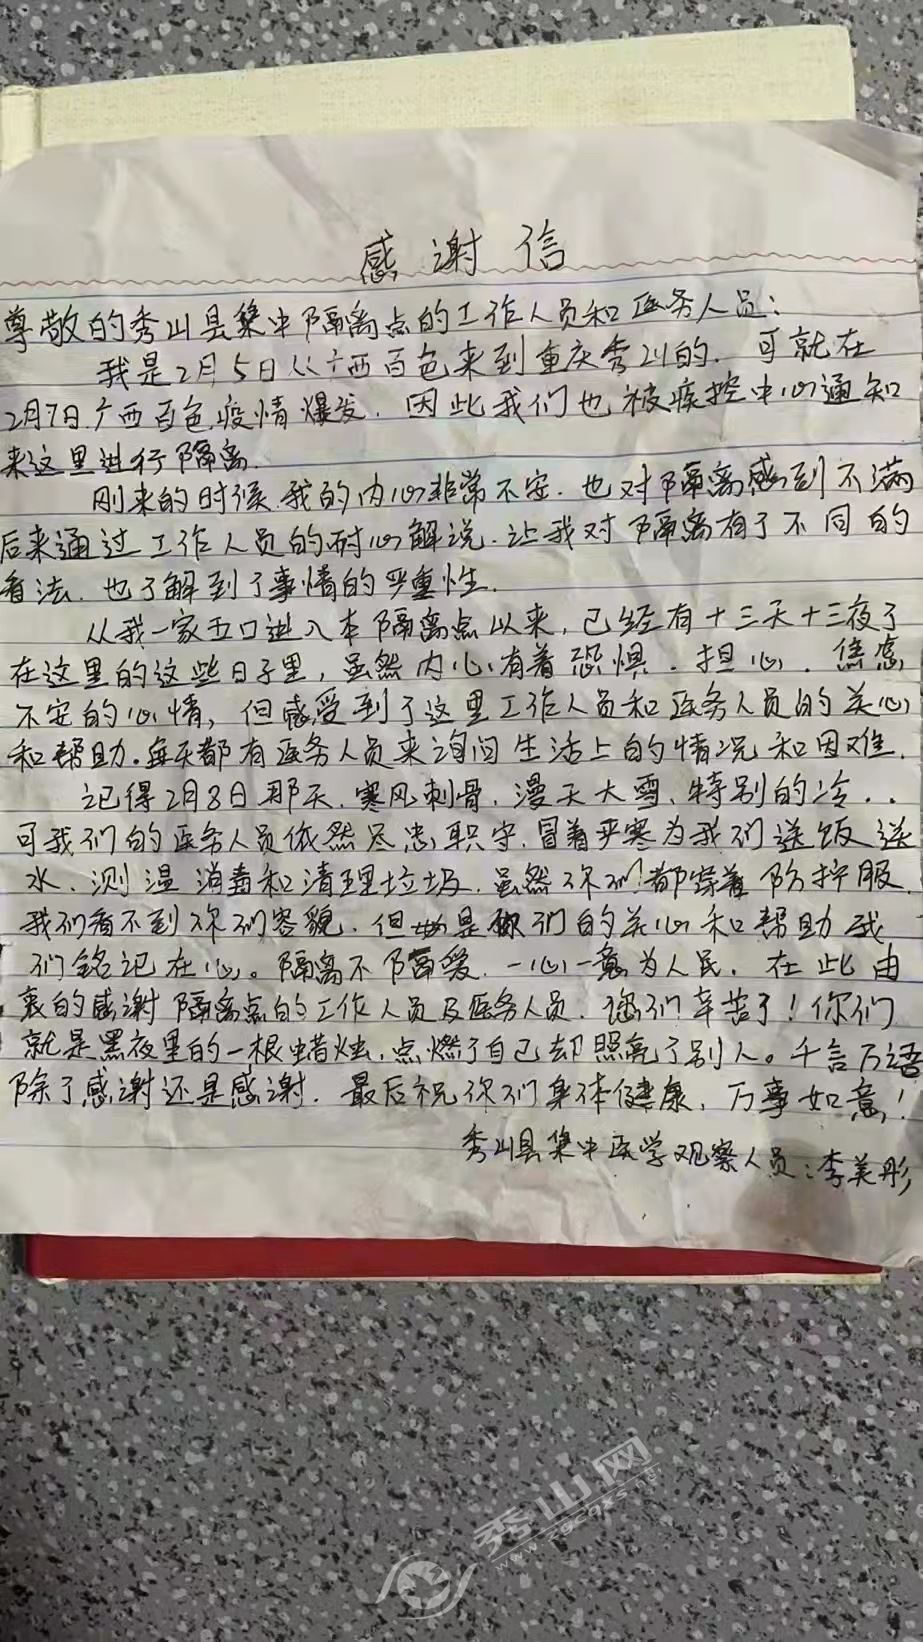 感谢信
尊敬的秀山县集中隔离点的工作人员和医务人员：
我是2月5日从广西百色来到重庆秀山的.可就在
2月7日广西百色疫情爆发.因此我们也被疾控中心通知
来这里进行隔离.
刚来的时候.我的内心非常不安.也对隔离感到不满
后来通过工作人员的耐心解说.让我对隔离有了不同的
看法.也了解到了事情的严重性.
从我一家五口进入本隔离点以来,已经有十三天十三夜了
在这里的这些日子里,虽然内心有着恐惧.担心.焦虑
不安的心情,但感受到了这里工作人员和医务人员的关心
和帮助.每天都有医务人员来询问生活上的情况和困难.
记得2月8日那天.寒风刺骨.漫天大雪、特别的冷..
可我们的医务人员依然尽忠职守.冒着严寒为我们送饭送
水.测温消毒和清理垃圾.虽然你们都穿着防护服
我们看不到你们容貌.但是你们的关心和帮助我
们铭记在心。隔离不隔爱.一心一意为人民.在此由
衷的感谢隔离点的工作人员及医务人员.您们辛苦了!你们
就是黑夜里的一根蜡烛,点燃了自己却照亮了别人。千言万语
除了感谢还是感谢.最后祝你们身体健康,万事如意!
秀山县集中医学观察人员:李美彤
秀山网
www.zgcqxs.net